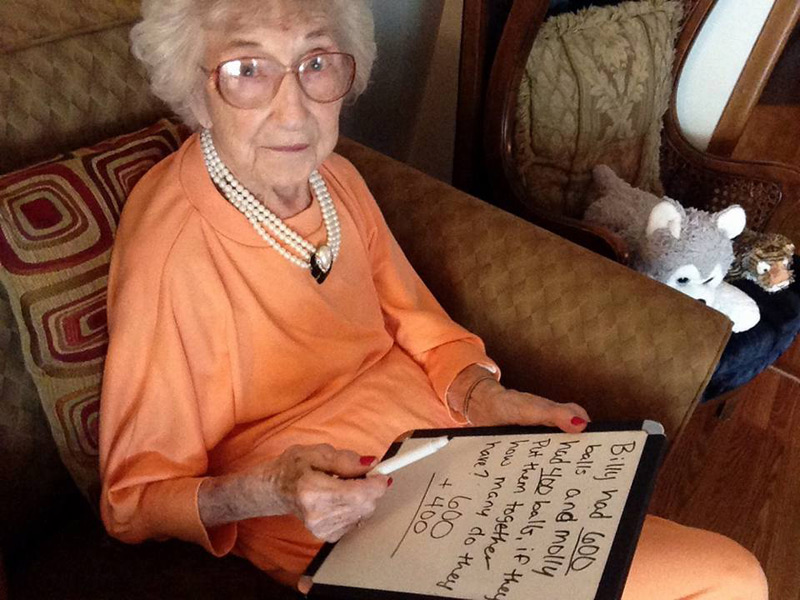 Billy had 600
balls and molly
had 400 balls, if they
Put them together
how many do they
have?
600
+ 400